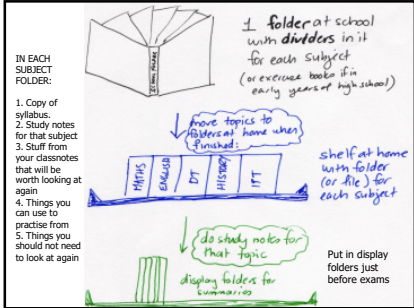 IN EACH
SUBJECT
FOLDER:
1. Copy of
syllabus.
2. Study notes
for that subject
3. Stuff from
your classnotes
that will be
worth looking at
again
4. Things you
can use to
practise from
5. Things you
should not need
to look at again
SCHOOL FOLDER
1 folder at school
with dividers in it
for each subject
(or exercise books if in
early years of high school)
move topics to
folders at home when
finished:
MATHS
ENGLISH
DT
HISTORY
ITT
shelf at home
with folder
(or file) for
each subject
do study notes for
that topic
display folders for
summaries
Put in display
folders just
before exams